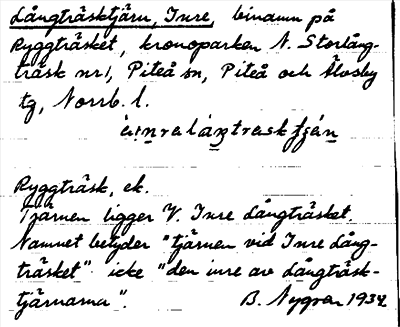 Långträsktjärn, Inre, binamn på
Ryggträsket, kronoparken N. Storlång-
träsk nr 1, Piteå sn, Piteå och Älvsby
tg, Norrb. l.
Ryggträsk, ek.
Tjärnen ligger V. Inre Långträsket.
Namnet betyder "tjärnen vid Inre Lång-
träsket" icke "den inre av Långträsk-
tjärnarna".   B. Nygren 1934